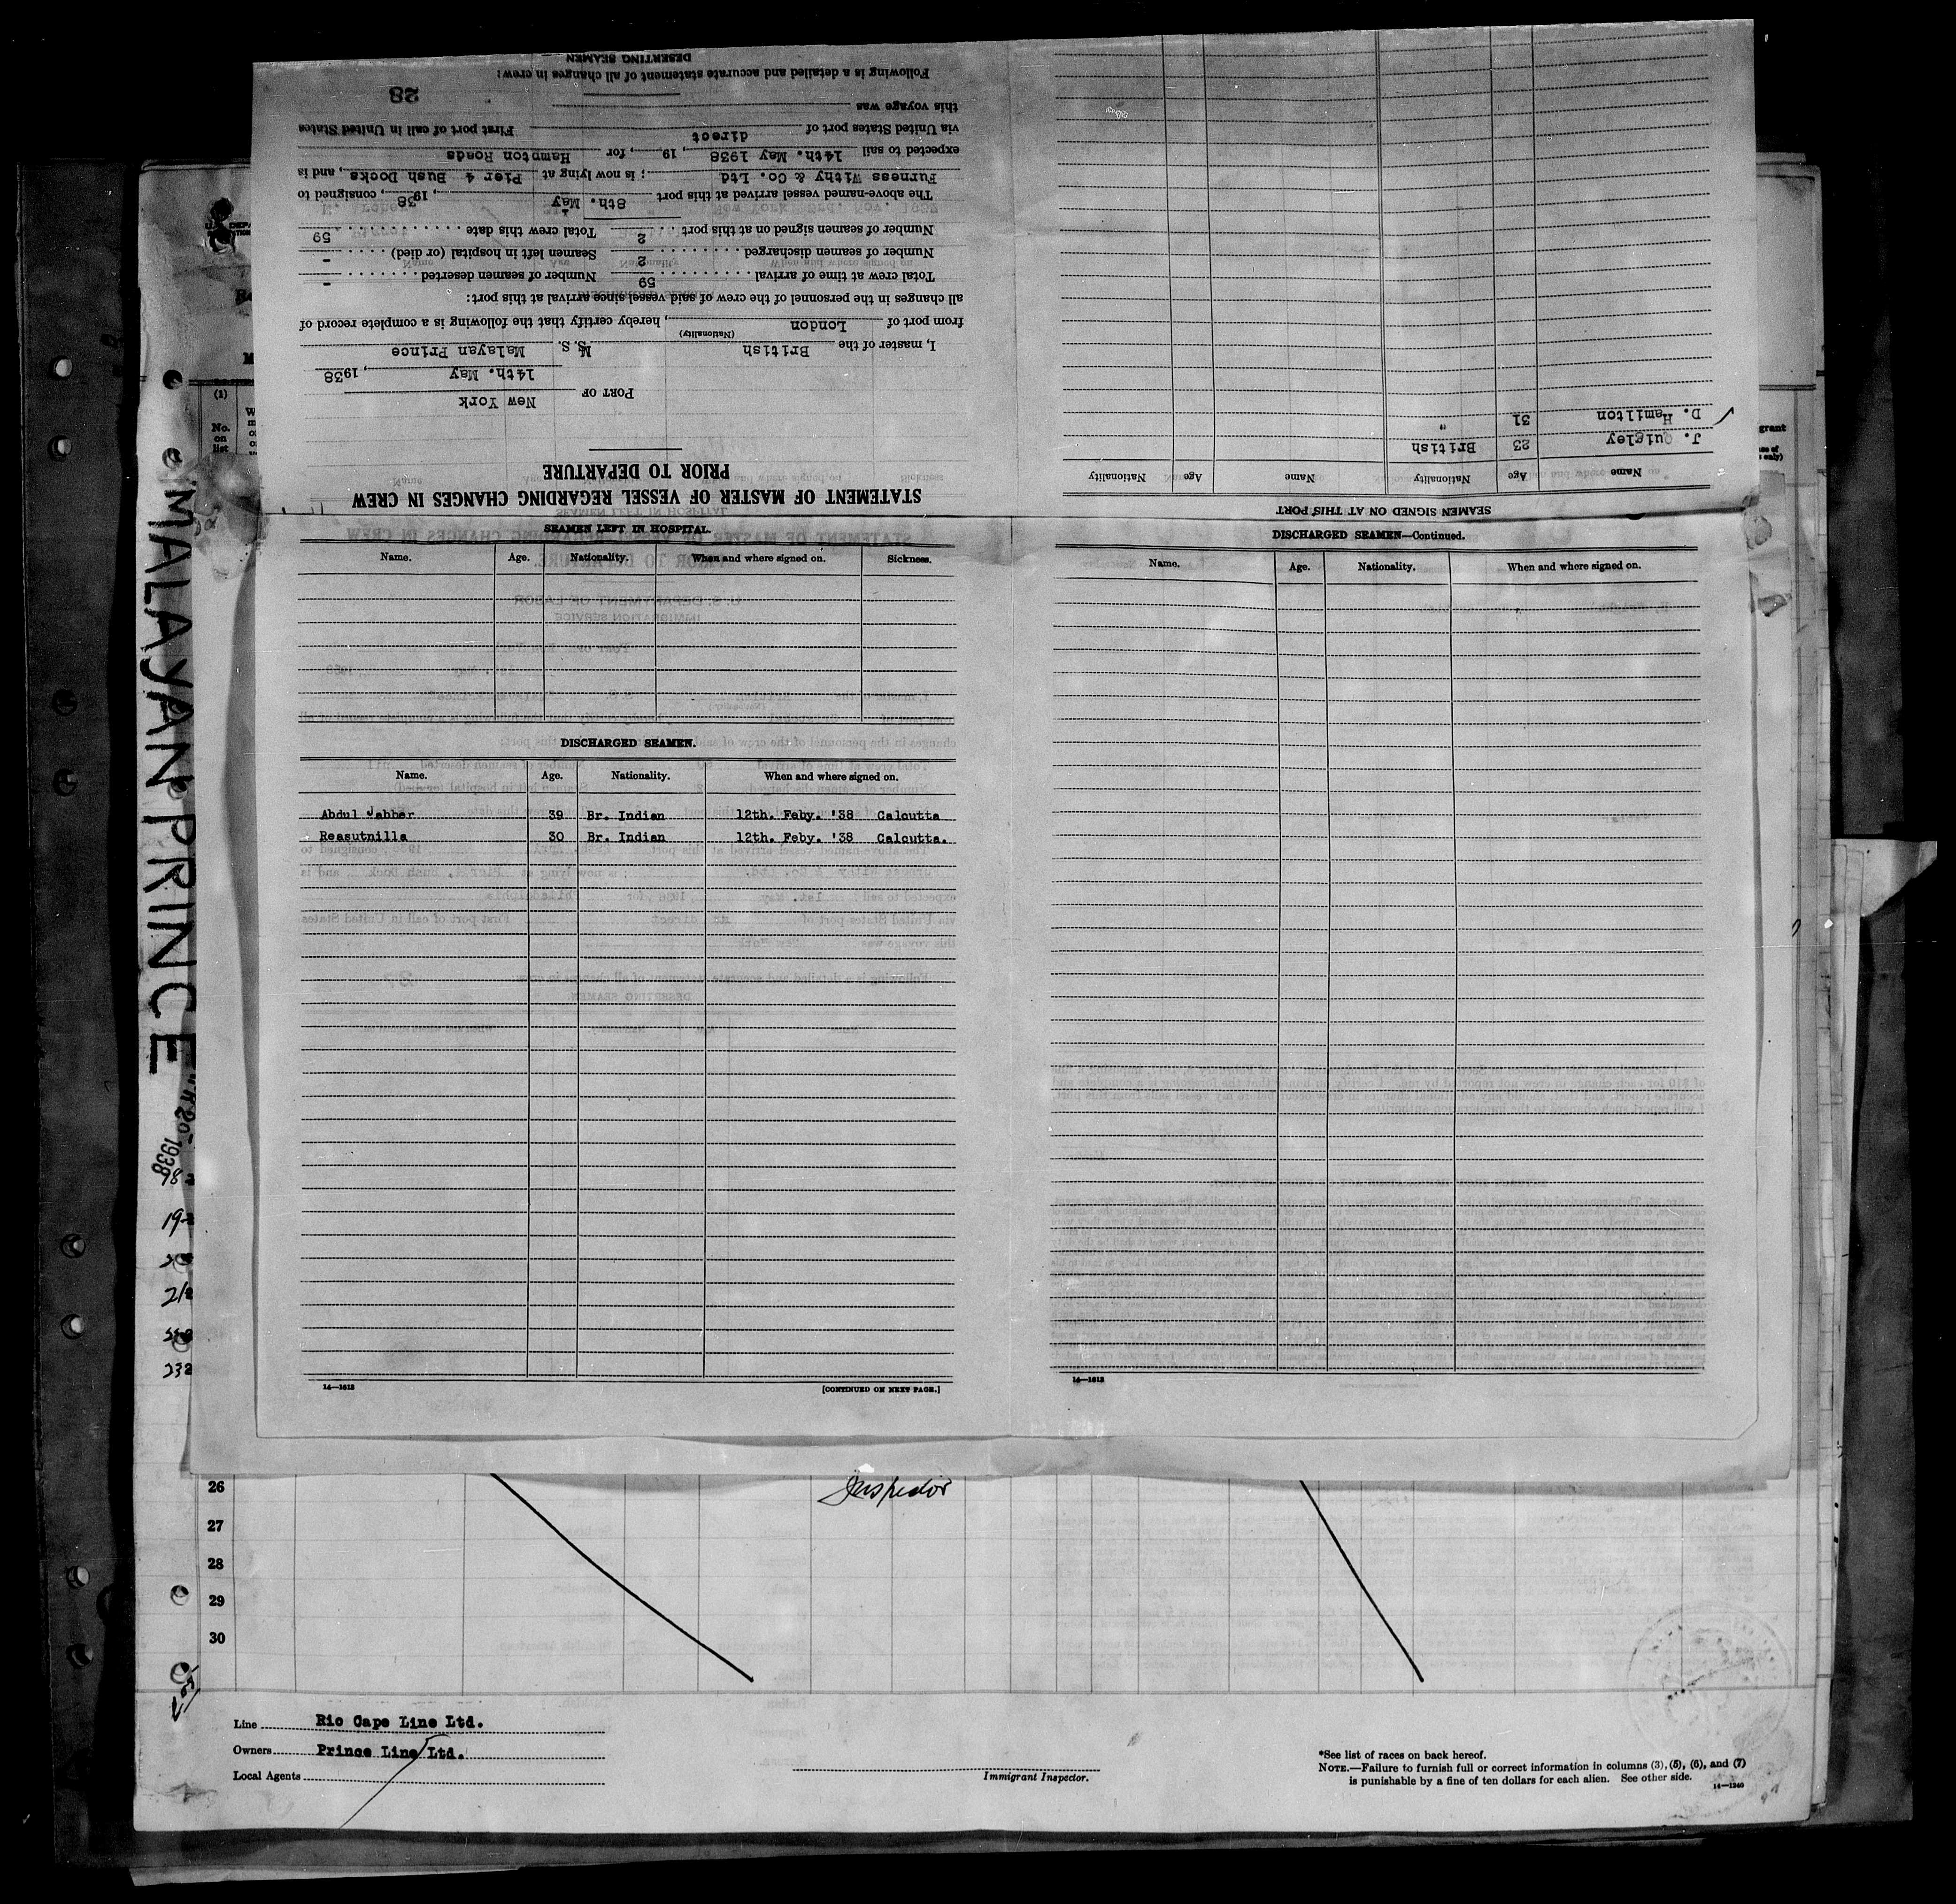 STATEMENT OF MASTER OF VESSEL REGARDING CHANGES IN CREW
PRIOR TO DEPARTURE
PORT OF New York
14th. May, 1938
I, master of the British M.S. Malayan Prince
(Nationality)
from port of London, hereby certify that the following is a complete record of
all changes in the personnel of the crew of said vessel since arrival at this port:
Total crew at time of arrival 59 Number of seamen deserted -
Number of seamen discharged 2 Seamen left in hospital (or died) -
Number of seamen signed on at this port 2 Total crew this date 59
The above-named vessel arrived at this port 8th. May, 1938, consigned to
Furness Withy & Co. Ltd; is now lying at Pier 4 Bush Docks, and is
expected to sail 14th. May 1938, 19, for Hampton Roads
via United States port of direct First port of call in United States
this voyage was
28
Following is a detailed and accurate statement of all changes in crew:
DESERTING SEAMEN
SEAMEN SIGNED ON AT THIS PORT
Name Age Nationality Name Age Nationality
J. Quigley 23 British
D. Hamilton 31 "
SEAMEN LEFT IN HOSPITAL.
Name. Age. Nationality. When and where signed on. Sickness.
DISCHARGED SEAMEN.
Name. Age. Nationality. When and where signed on.
Abdul Jabber 39 Br. Indian 12th. Feby. '38 Calcutta
Reasutnilla 30 Br. Indian 12th. Feby. '38 Calcutta.
14—1612
[CONTINUED ON NEXT PAGE.]
DISCHARGED SEAMEN—Continued.
Name. Age. Nationality. When and where signed on.
14—1612
(1)
No.
on
list
MALAYAN PRINCE
1938
232
Inspector
26
27
28
29
30
Line Rio Cape Line Ltd.
Owners Prince Line Ltd.
Local Agents
Immigrant Inspector.
*See list of races on back hereof.
NOTE.—Failure to furnish full or correct information in columns (3), (5), (6), and (7)
is punishable by a fine of ten dollars for each alien. See other side.
14—1240